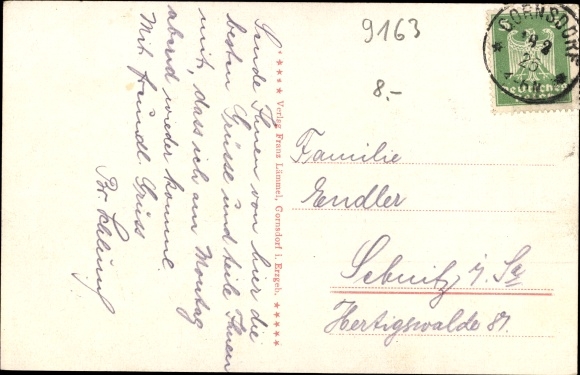 Sende Ihnen von hier die
besten Grüsse und teile Ihnen
mit, dass ich am Montag
abend wieder komme.
Mit freundl. Gruss
**** Verlag Franz Lämmel, Cornsdorf i. Erzgeb. ****
9163
8.-
Familie
Endler
Sebnitz i/Sa
Hertigswalde 81.